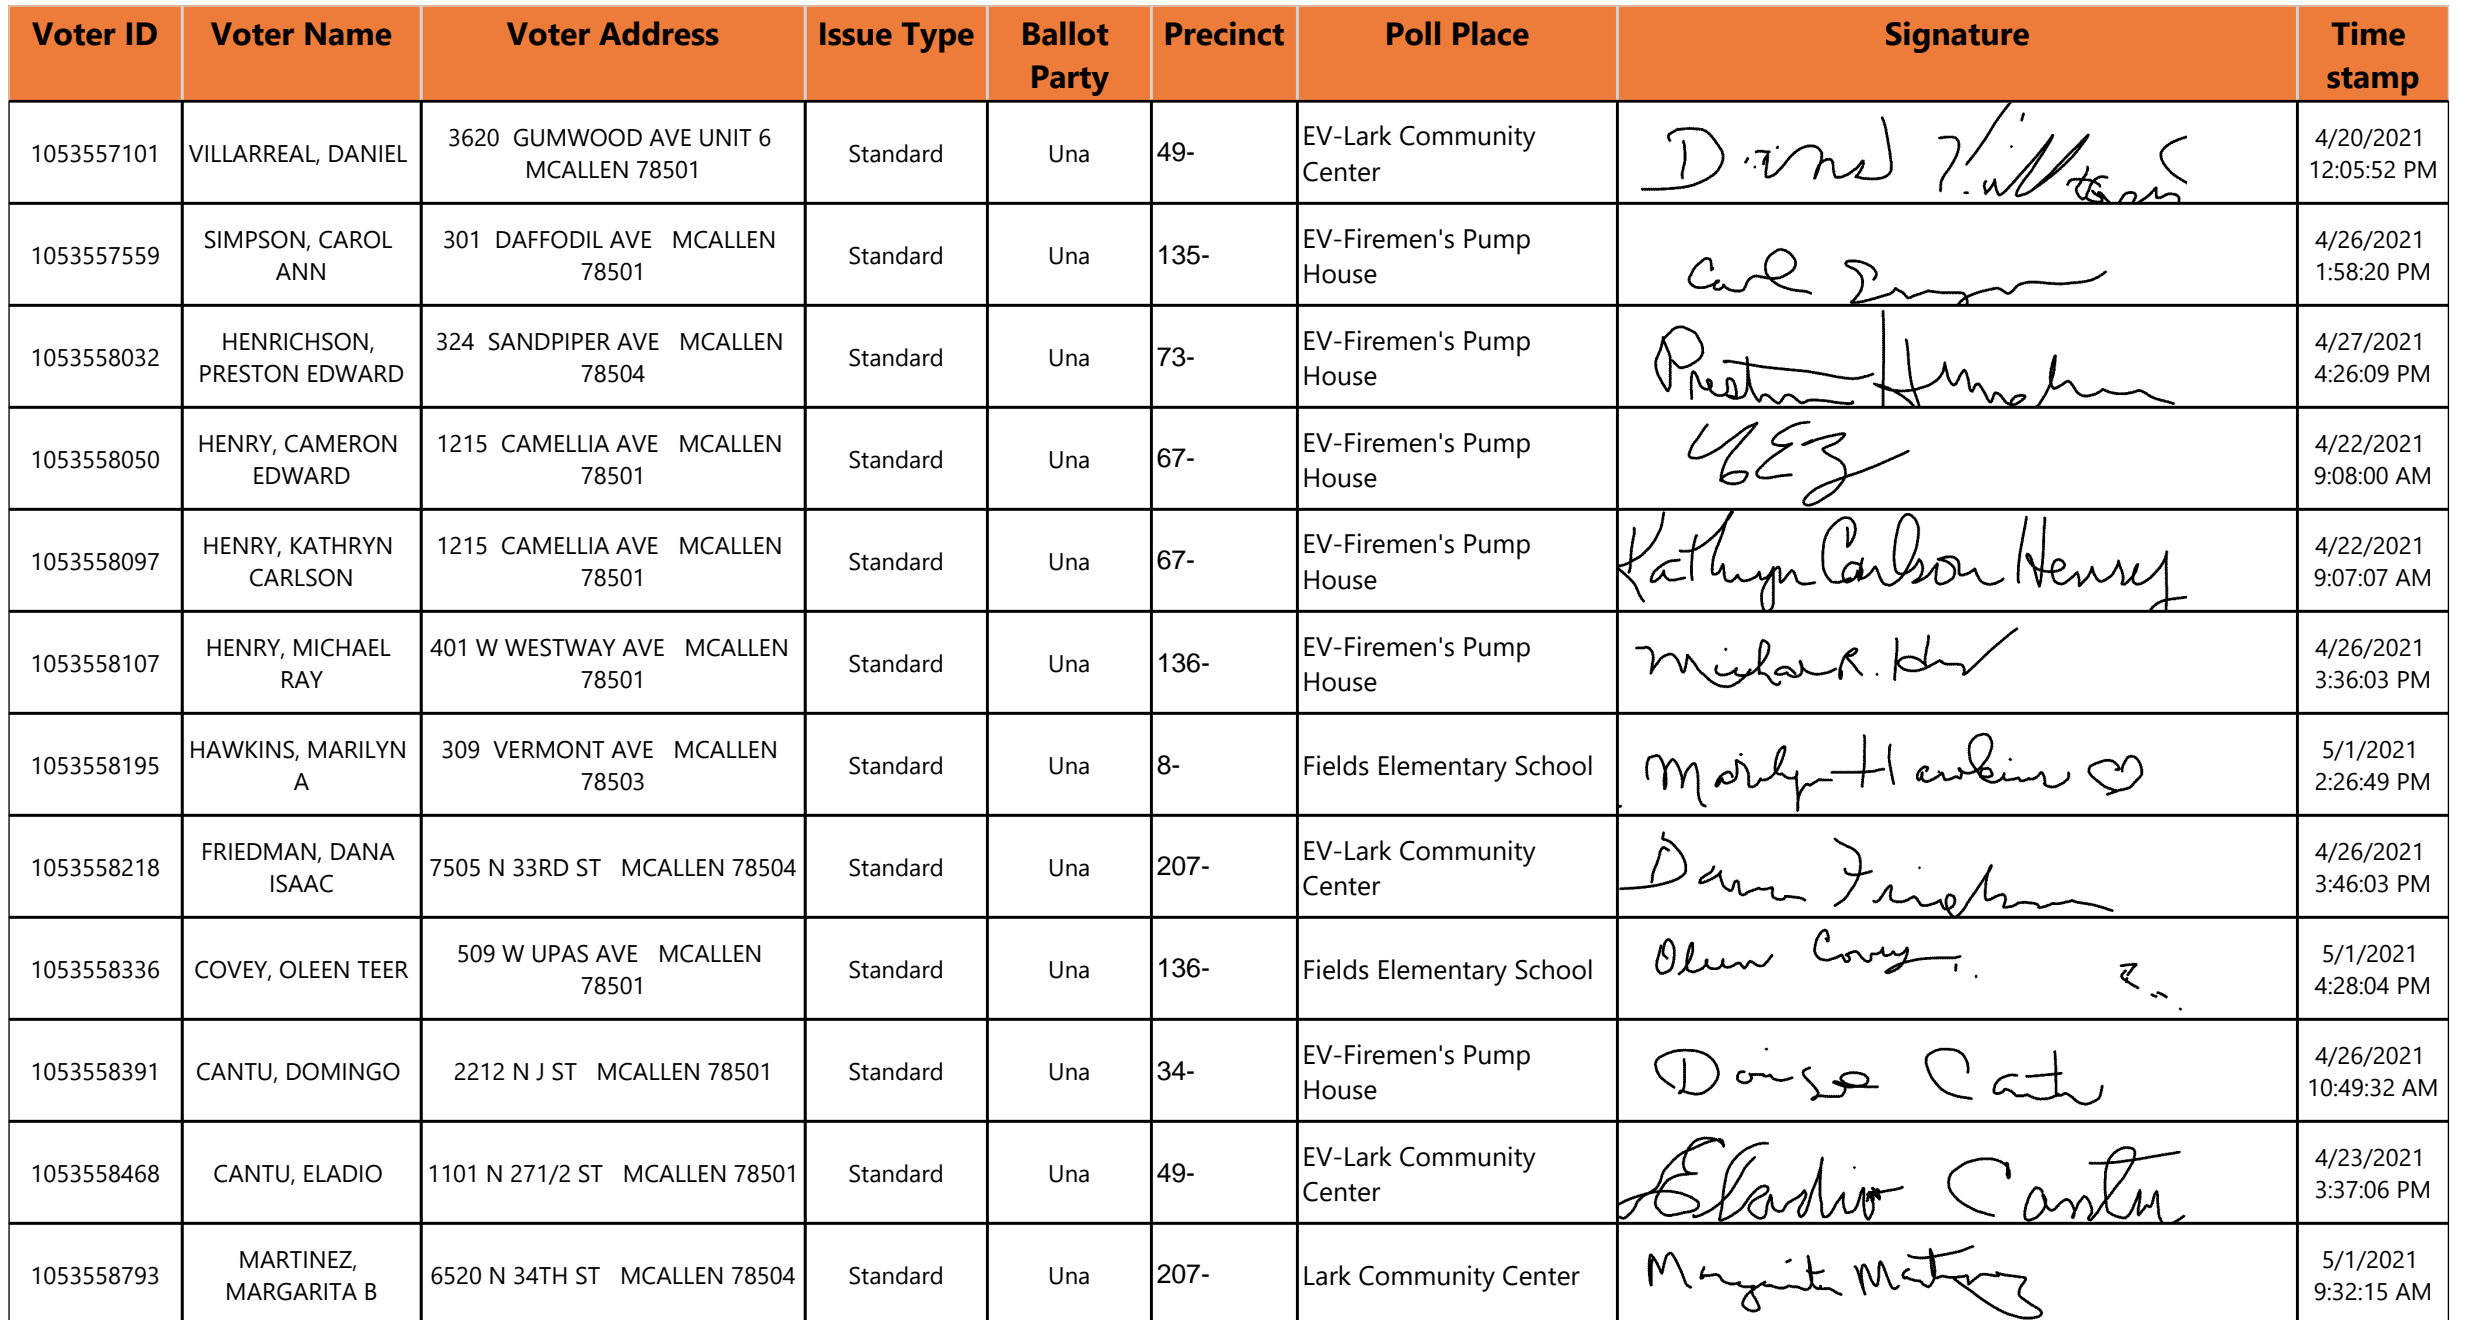 Voter ID Voter Name Voter Address Issue Type Ballot Party Precinct Poll Place Signature Time stamp
1053557101 VILLARREAL, DANIEL 3620 GUMWOOD AVE UNIT 6 MCALLEN 78501 Standard Una 49- EV-Lark Community Center 4/20/2021 12:05:52 PM
1053557559 SIMPSON, CAROL ANN 301 DAFFODIL AVE MCALLEN 78501 Standard Una 135- EV-Firemen's Pump House 4/26/2021 1:58:20 PM
1053558032 HENRICHSON, PRESTON EDWARD 324 SANDPIPER AVE MCALLEN 78504 Standard Una 73- EV-Firemen's Pump House 4/27/2021 4:26:09 PM
1053558050 HENRY, CAMERON EDWARD 1215 CAMELLIA AVE MCALLEN 78501 Standard Una 67- EV-Firemen's Pump House 4/22/2021 9:08:00 AM
1053558097 HENRY, KATHRYN CARLSON 1215 CAMELLIA AVE MCALLEN 78501 Standard Una 67- EV-Firemen's Pump House Kathryn Carlson Henry 4/22/2021 9:07:07 AM
1053558107 HENRY, MICHAEL RAY 401 W WESTWAY AVE MCALLEN 78501 Standard Una 136- EV-Firemen's Pump House 4/26/2021 3:36:03 PM
1053558195 HAWKINS, MARILYN A 309 VERMONT AVE MCALLEN 78503 Standard Una 8- Fields Elementary School Marilyn Hawkins 5/1/2021 2:26:49 PM
1053558218 FRIEDMAN, DANA ISAAC 7505 N 33RD ST MCALLEN 78504 Standard Una 207- EV-Lark Community Center 4/26/2021 3:46:03 PM
1053558336 COVEY, OLEEN TEER 509 W UPAS AVE MCALLEN 78501 Standard Una 136- Fields Elementary School Oleen Covey 5/1/2021 4:28:04 PM
1053558391 CANTU, DOMINGO 2212 N J ST MCALLEN 78501 Standard Una 34- EV-Firemen's Pump House Cantu 4/26/2021 10:49:32 AM
1053558468 CANTU, ELADIO 1101 N 271/2 ST MCALLEN 78501 Standard Una 49- EV-Lark Community Center Eladio Cantu 4/23/2021 3:37:06 PM
1053558793 MARTINEZ, MARGARITA B 6520 N 34TH ST MCALLEN 78504 Standard Una 207- Lark Community Center 5/1/2021 9:32:15 AM